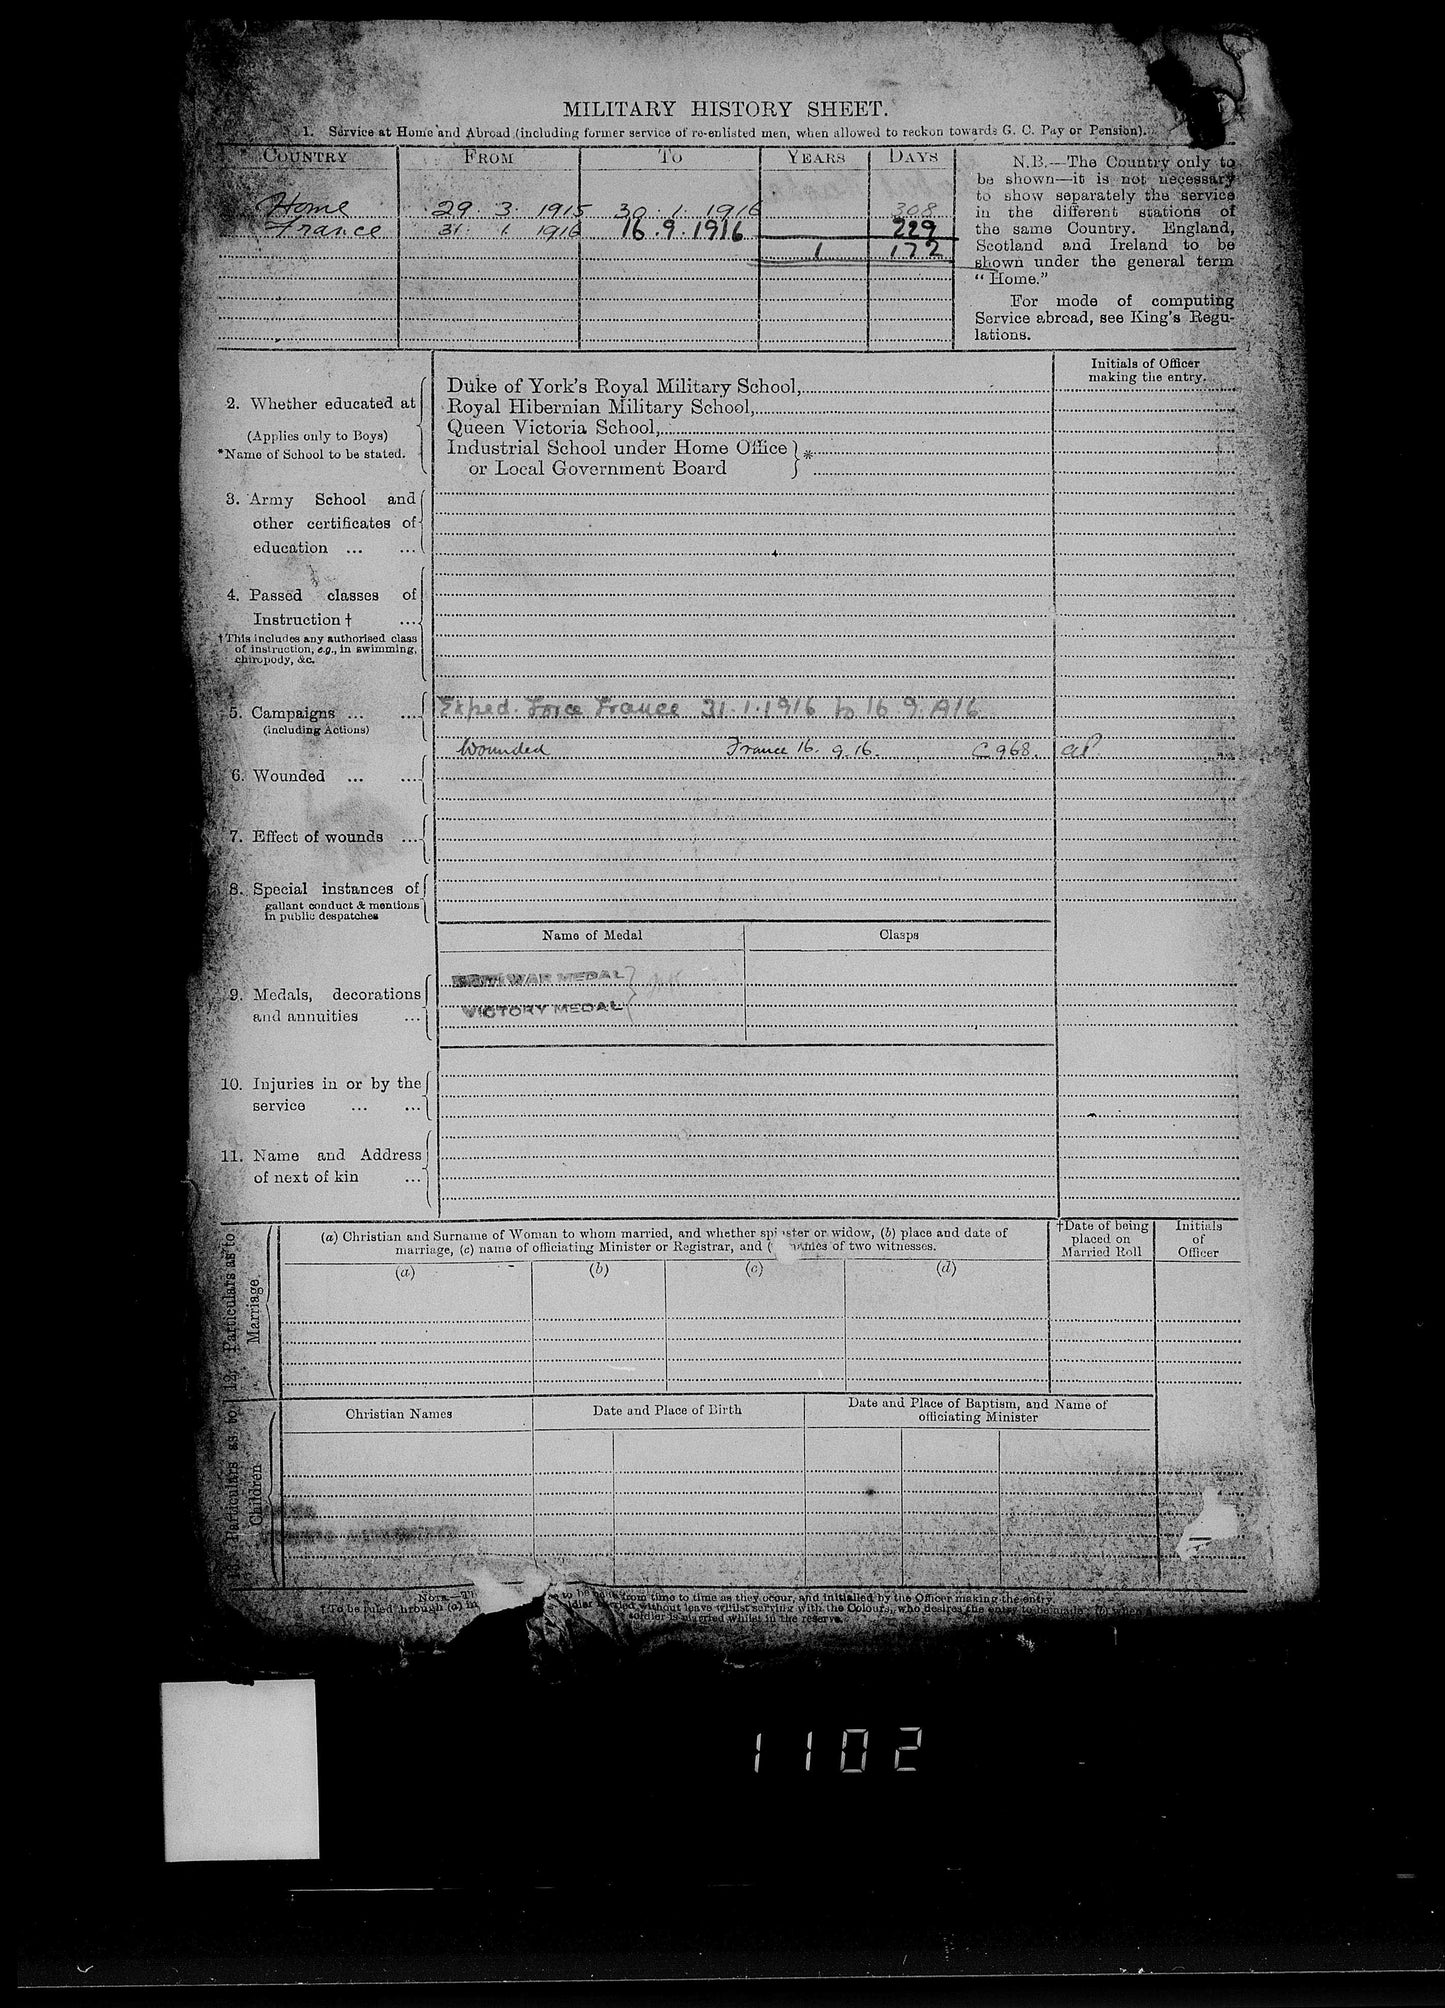 MILITARY HISTORY SHEET.
1. Service at Home and Abroad (including former service of re-enlisted men, when allowed to reckon towards G. C. Pay or Pension).
COUNTRY FROM TO YEARS DAYS
Home 29. 3. 1915 30. 1. 1916 308
France 31. 1. 1916 16.9.1916 229
1 172
N.B.—The Country only to
be shown—it is not necessary
to show separately the service
in the different stations of
the same Country. England,
Scotland and Ireland to be
shown under the general term
“Home.”
For mode of computing
Service abroad, see King's Regu-
lations.
Initials of Officer
making the entry.
2. Whether educated at
(Applies only to Boys)
*Name of School to be stated.
Duke of York's Royal Military School,
Royal Hibernian Military School,
Queen Victoria School,
Industrial School under Home Office } *
or Local Government Board
3. Army School and
other certificates of
education ... ...
4. Passed classes of
Instruction † ...
†This includes any authorised class
of instruction, e.g., in swimming,
chiropody, &c.
5. Campaigns ... ...
(including Actions)
Exped. Force France 31.1.1916 to 16.9.1916
Wounded France 16. 9.16. C968.
6. Wounded ... ...
7. Effect of wounds ...
8. Special instances of
gallant conduct & mentions
in public despatches
Name of Medal Clasps
9. Medals, decorations
and annuities ...
WAR MEDAL
VICTORY MEDAL
10. Injuries in or by the
service ... ...
11. Name and Address
of next of kin ...
12. Particulars as to
Marriage.
(a) Christian and Surname of Woman to whom married, and whether spinster or widow, (b) place and date of
marriage, (c) name of officiating Minister or Registrar, and names of two witnesses.
†Date of being
placed on
Married Roll
Initials
of
Officer
(a) (b) (c) (d)
Particulars as to
Children
Christian Names Date and Place of Birth
Date and Place of Baptism, and Name of
officiating Minister
to be from time to time as they occur, and initialled by the Officer making the entry.
†To be ruled through (a) in without leave whilst serving with the Colours, who desires the entry to be made
soldier is married whilst in the reserve.
1102